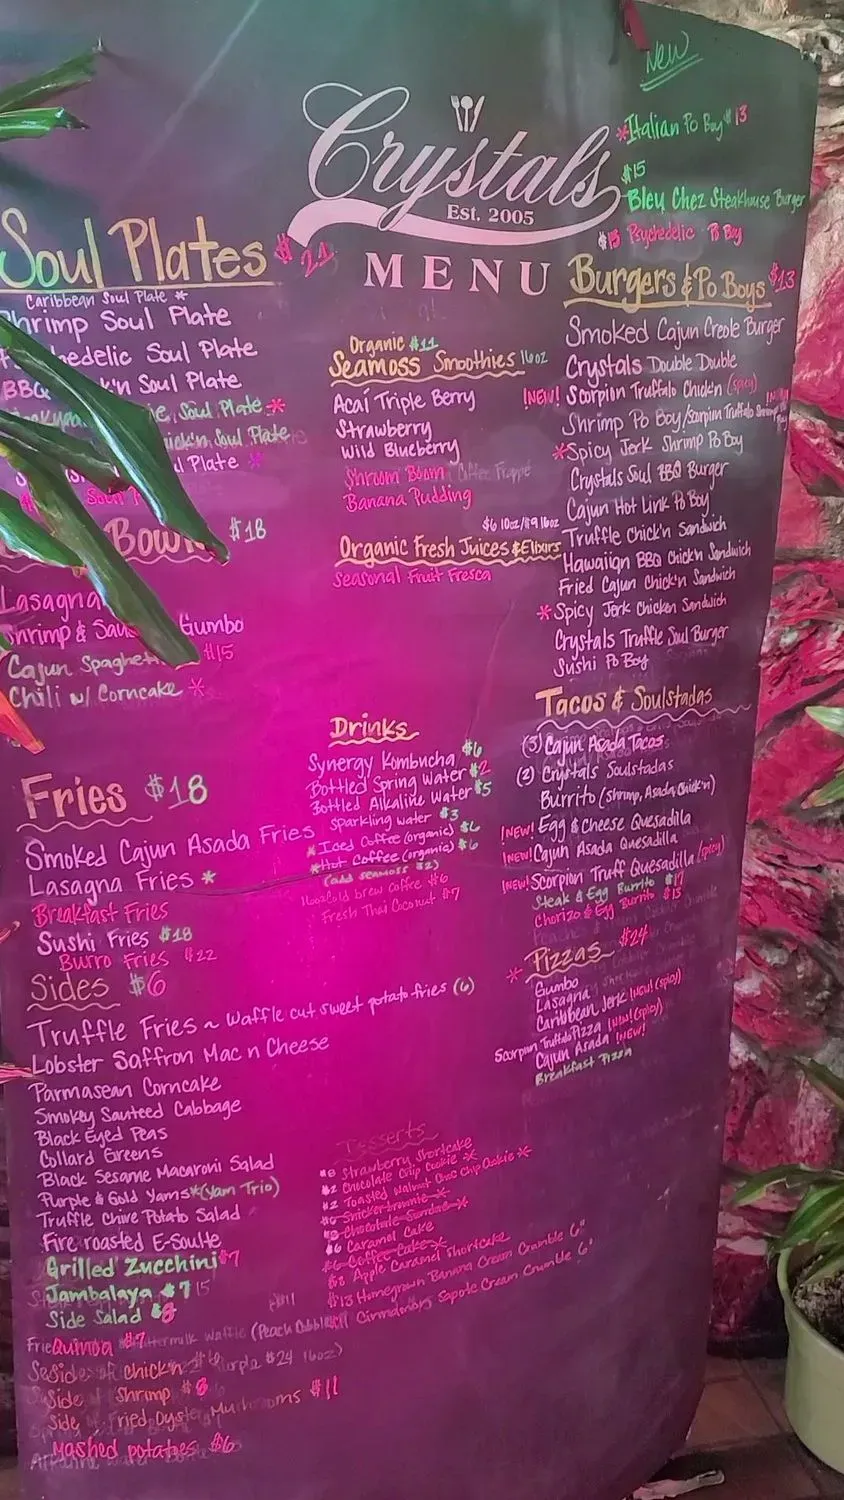 NEW
*Italian Po Boy $13
$15
Bleu Chez Steakhouse Burger
$15 Psychedelic Po Boy
Crystals
Est. 2005
MENU
Soul Plates $21
Caribbean Soul Plate *
Shrimp Soul Plate
hedelic Soul Plate
BBQ k'n Soul Plate
Soul Plate *
hick'n Soul Plate
l Plate *
Soul
Bowl $18
Lasagna
Shrimp & Gumbo
Cajun Spaghet $15
Chili w/ Corncake *
Fries $18
Smoked Cajun Asada Fries
Lasagna Fries *
Breakfast Fries
Sushi Fries $18
Burro Fries $22
Sides $6
Truffle Fries ~ Waffle cut sweet potato fries (6)
Lobster Saffron Mac n Cheese
Parmasean Corncake
Smokey Sauteed Cabbage
Black Eyed Peas
Collard Greens
Black Sesame Macaroni Salad
Purple & Gold Yams *(Yam Trio)
Truffle Chive Potato Salad
Fire roasted E-Soulte
Grilled Zucchini $7
Jambalaya $7
Side Salad $8
Quinoa $7
Side of chick'n
Side of Shrimp $8
Side of Fried Oyster Mushrooms $11
Mashed potatoes $6
Organic $11
Seamoss Smoothies 16oz
Acaí Triple Berry
Strawberry
Wild Blueberry
Shroom Boom Coffee Frappé
Banana Pudding
$6 10oz/$9 16oz
Organic Fresh Juices & Elixirs
Seasonal Fruit Fresca
Drinks
Synergy Kombucha $6
Bottled Spring Water $2
Bottled Alkaline Water $5
Sparkling water $3
*Iced Coffee (organic) $6
*Hot Coffee (organic) $6
(add seamoss $2)
16oz Cold brew coffee $6
Fresh Thai Coconut $7
Desserts
$8 Strawberry Shortcake
$2 Chocolate Chip Cookie *
$2 Toasted Walnut Choc Chip Cookie *
$6 Snicker brownie *
Chocolate Sundae *
$6 Caramel Cake
$6 Coffee Cake *
$8 Apple Caramel Shortcake
$13 Homegrown Banana Cream Crumble 6"
Sapote Cream Crumble 6"
Burgers & Po Boys $13
Smoked Cajun Creole Burger
Crystals Double Double
[NEW! Scorpion Truffalo Chick'n (spicy)
Shrimp Po Boy/Scorpion Truffalo Shrimp
*Spicy Jerk Shrimp Po Boy
Crystals Soul BBQ Burger
Cajun Hot Link Po Boy
Truffle Chick'n Sandwich
Hawaiian BBQ Chick'n Sandwich
Fried Cajun Chick'n Sandwich
*Spicy Jerk Chicken Sandwich
Crystals Truffle Soul Burger
Sushi Po Boy
Tacos & Soulstadas
(3) Cajun Asada Tacos
(2) Crystals Soulstadas
Burrito (Shrimp, Asada, Chick'n)
[NEW! Egg & Cheese Quesadilla
[NEW! Cajun Asada Quesadilla
[NEW! Scorpion Truff Quesadilla (spicy)
Steak & Egg Burrito $17
Chorizo & Egg Burrito $13
* Pizzas $24
Gumbo
Lasagna
Caribbean Jerk [NEW! (spicy)
Scorpion Truffalo Pizza [NEW! (spicy)
Cajun Asada [NEW!
Breakfast Pizza